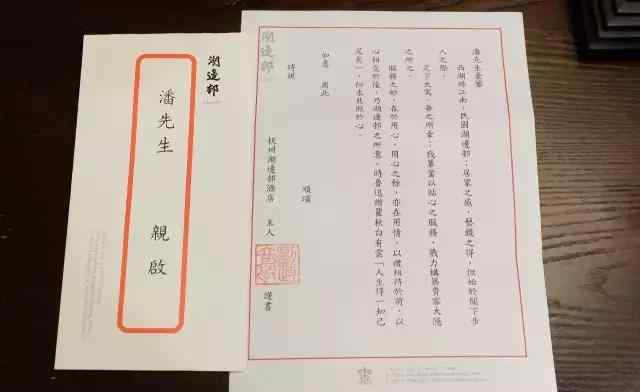 湖邊邨
潘先生 親啟
潘先生臺鑒
西湖臨江南,民國湖邊邨;居家之感,藝之得,但始於閣下步
入之際。
足下大駕,吾之所幸;我輩當以貼心之服務,戮力構築賓客大隱
之所之。
服務之妙,在於用心,用心之極,亦在用情,以禮相待於前,以
心相交於後,乃湖邊邨之所意。時魯迅贈瞿秋白有雲「人生得一知己
足矣」,但求於心。
如意 此
順頌
時祺
杭州湖邊邨酒店 主人 謹書
湖邊邨